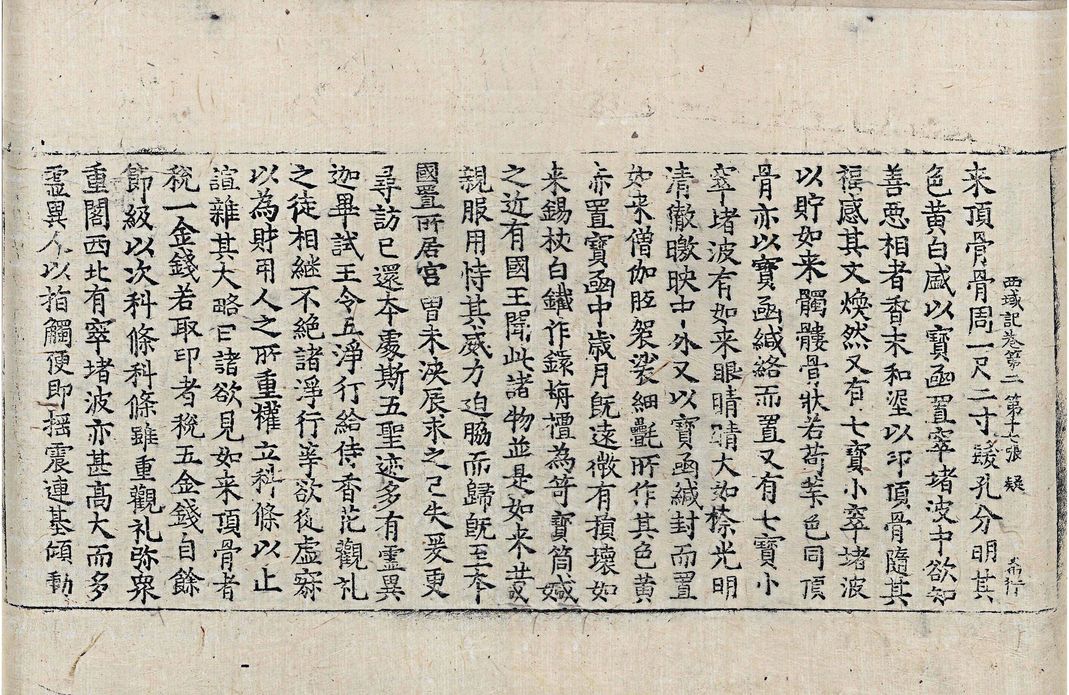 西域記卷第二 第十七張 疑
来頂骨骨周一尺二寸髮孔分明其
色黃白盛以寶函置窣堵波中欲知
善惡相者香末和埿以印頂骨隨其
福感其文煥然又有七寶小窣堵波
以貯如来髑髏骨狀若荷荼色同頂
骨亦以寶函緘絡而置又有七寶小
窣堵波有如来眼睛睛大如㮈光明
清徹曒映中外又以寶函緘封而置
如来僧伽胝袈裟細㲲所作其色黃
赤置寶函中歲月旣遠微有損壞如
来錫杖白鐵作鐶栴檀為笴寶筒盛
之近有國王聞此諸物並是如来昔
親服用恃其威力迫脇而歸旣至本
國置所居宮曾未浹辰求之已失爰更
尋訪已還本處斯五聖迹多有靈異
迦畢試王令五淨行給侍香花觀礼
之徒相継不絶諸淨行等欲從虛寂
以為財用人之所重權立科條以止
諠雜其大略曰諸欲見如来頂骨者
稅一金錢若取印者稅五金錢自餘
節級以次科條科條雖重觀礼弥衆
重閣西北有窣堵波亦甚高大而多
靈異人以指觸便即搖震連基傾動